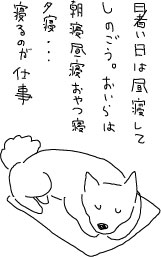 暑い日は昼寝して
しのごう。おいらは
朝寝昼寝おやつ寝
夕寝・・・
寝るのが仕事